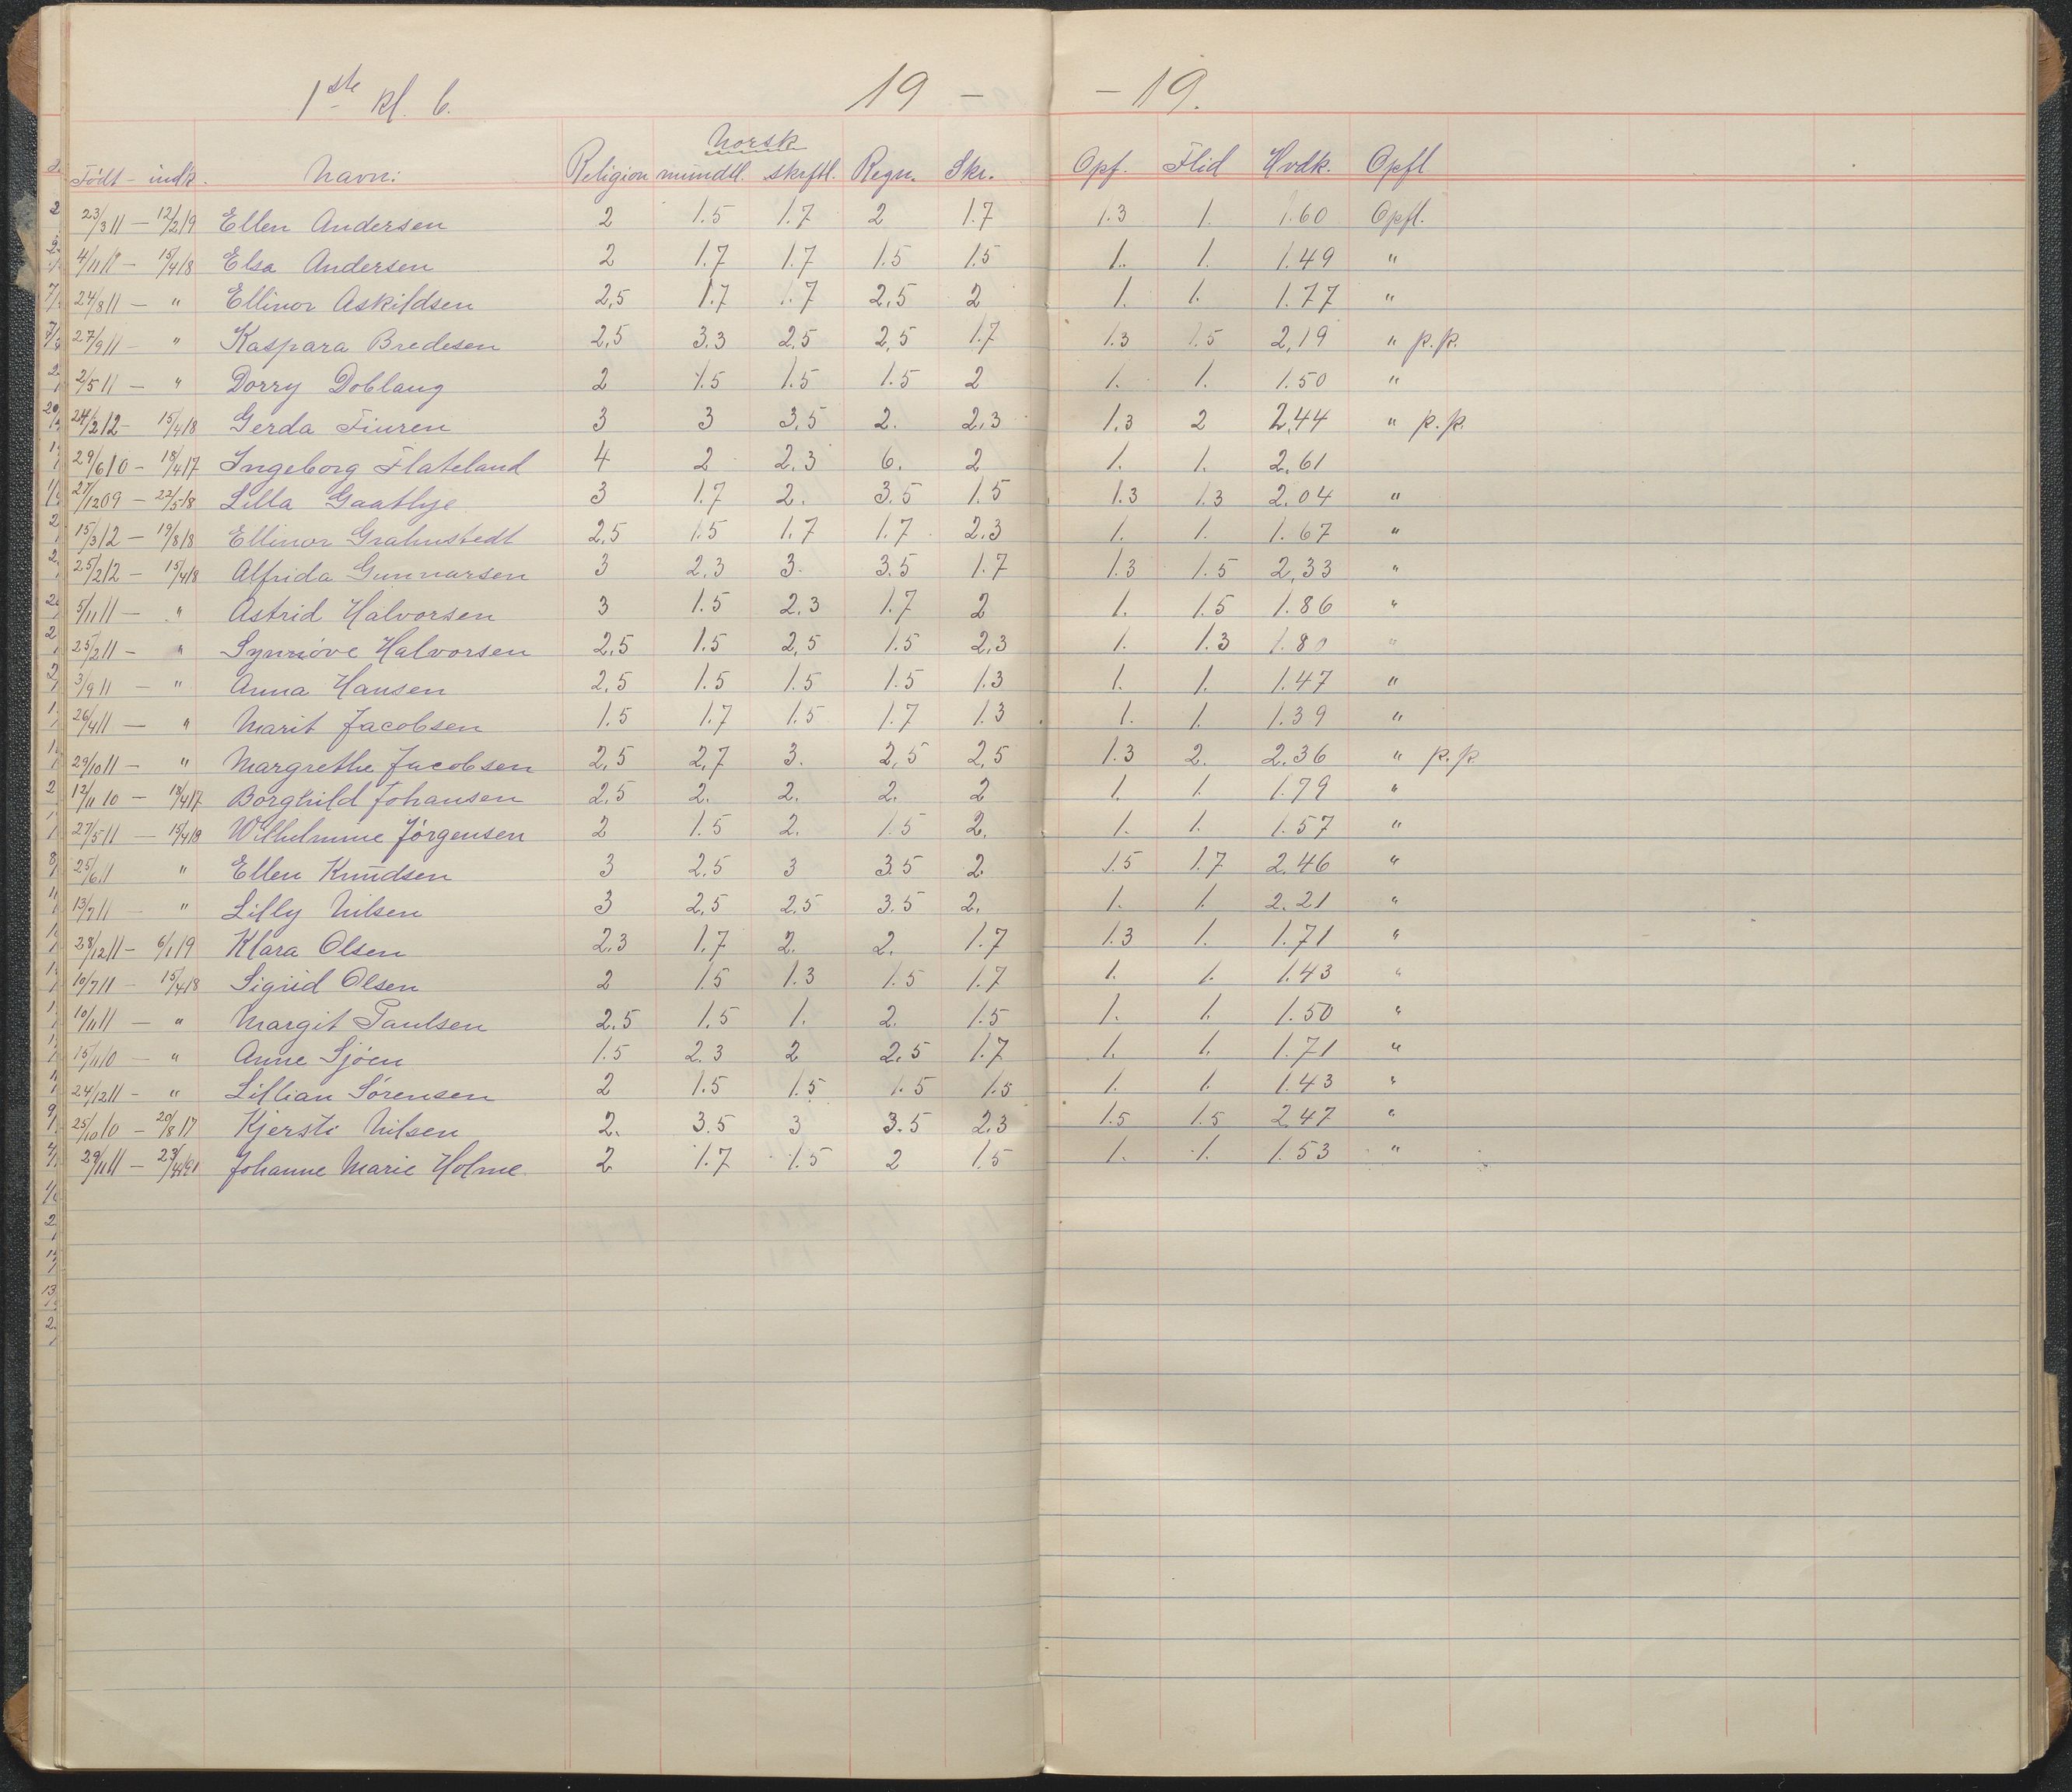 1ste kl. b. 19 - - 19.
Norsk
Født - indk. Navn: Religion mundtl. skrftl. Regn. Skr. Opf. Flid Hvdk. Opfl
23/3 11 - 12/2 19 Ellen Andersen 2 1.5 1.7 2 1.7 1.3 1. 1.60 Opfl.
4/11 11 - 15/4 18 Elsa Andersen 2 1.7 1.7 1.5 1.5 1. 1. 1.49 "
24/8 11 - " Ellinor Askildsen 2,5 1.7 1.7 2,5 2 1. 1. 1.77 "
27/9 11 - " Kaspara Bredesen 2,5 3.3 2.5 2,5 1.7 1.3 1.5 2,19 " p.p.
2/5 11 - " Dorry Doblaug 2 1.5 1.5 1.5 2 1. 1. 1.50 "
24/2 12 - 15/4 18 Gerda Fiuren 3 3 3.5 2. 2.3 1.3 2 2,44 " p.p.
29/6 10 - 18/4 17 Ingeborg Flateland 4 2 2.3 6. 2 1. 1. 2.61
27/12 09 - 22/5 18 Lilla Gaathje 3 1.7 2. 3.5 1.5 1.3 1.3 2.04 "
15/3 12 - 19/8 18 Ellinor Grahnstedt 2,5 1.5 1.7 1.7 2.3 1. 1. 1.67 "
25/2 12 - 15/4 18 Alfrida Gunnarsen 3 2.3 3. 3.5 1.7 1.3 1.5 2,33 "
5/11 11 - " Astrid Halvorsen 3 1.5 2.3 1.7 2 1. 1.5 1.86 "
25/2 11 - " Synnöve Halvorsen 2,5 1.5 2,5 1.5 2,3 1. 1.3 1.80 "
3/9 11 - " Anna Hansen 2,5 1.5 1.5 1.5 1.3 1. 1. 1.47 "
26/4 11 - " Marit Jacobsen 1.5 1.7 1.5 1.7 1.3 1. 1. 1.39 "
29/10 11 - " Margrethe Jacobsen 2,5 2,7 3. 2,5 2,5 1.3 2. 2.36 " p.p.
12/11 10 - 18/4 17 Borghild Johansen 2.5 2. 2. 2. 2 1. 1. 1.79 "
27/5 11 - 15/4 18 Wilhelmine Jørgensen 2 1.5 2. 1.5 2. 1. 1. 1.57 "
25/6 11 " Ellen Knudsen 3 2.5 3 3.5 2 1.5 1.7 2.46 "
13/7 11 - " Lilly Nilsen 3 2,5 2.5 3.5 2. 1. 1. 2.21 "
28/12 11 - 6/1 19 Klara Olsen 2,3 1.7 2. 2. 1.7 1.3 1. 1.71 "
10/7 11 - 15/4 18 Sigrid Olsen 2 1.5 1.3 1.5 1.7 1. 1. 1.43 "
10/11 11 - " Margit Paulsen 2.5 1.5 1. 2. 1.5 1. 1. 1.50 "
15/1 10 - " Anne Sjöen 1.5 2.3 2 2.5 1.7 1. 1. 1.71 "
24/12 11 - " Lillian Sørensen 2 1.5 1.5 1.5 1.5 1. 1. 1.43 "
25/10 10 - 20/8 17 Kjersti Nilsen 2. 3.5 3 3.5 2.3 1.5 1.5 2.47 "
29/11 11 - Johanne Marie Holme. 2 1.7 1.5 2 1.5 1. 1. 1.53 "